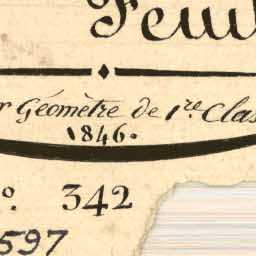 Géomètre de 1re. Clas
1846.
o. 342
597